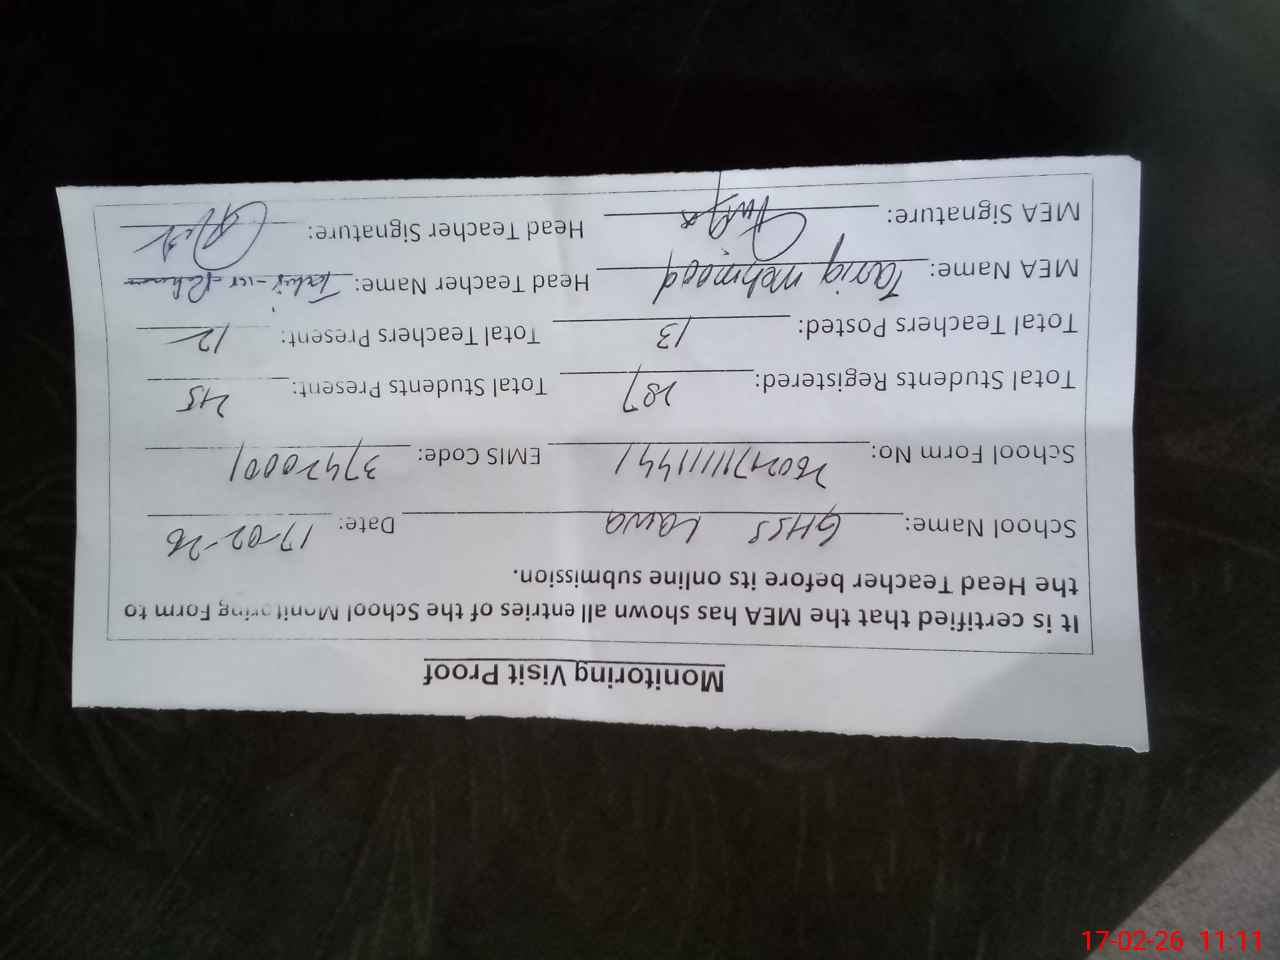 Monitoring Visit Proof
It is certified that the MEA has shown all entries of the School Monitoring Form to
the Head Teacher before its online submission.
School Name: GHSS Lawa Date: 17-02-26
School Form No: EMIS Code: 37420001
Total Students Registered: 287 Total Students Present: 245
Total Teachers Posted: 13 Total Teachers Present: 12
MEA Name: Tariq Mehmood Head Teacher Name:
MEA Signature: Head Teacher Signature:
17-02-26 11:11